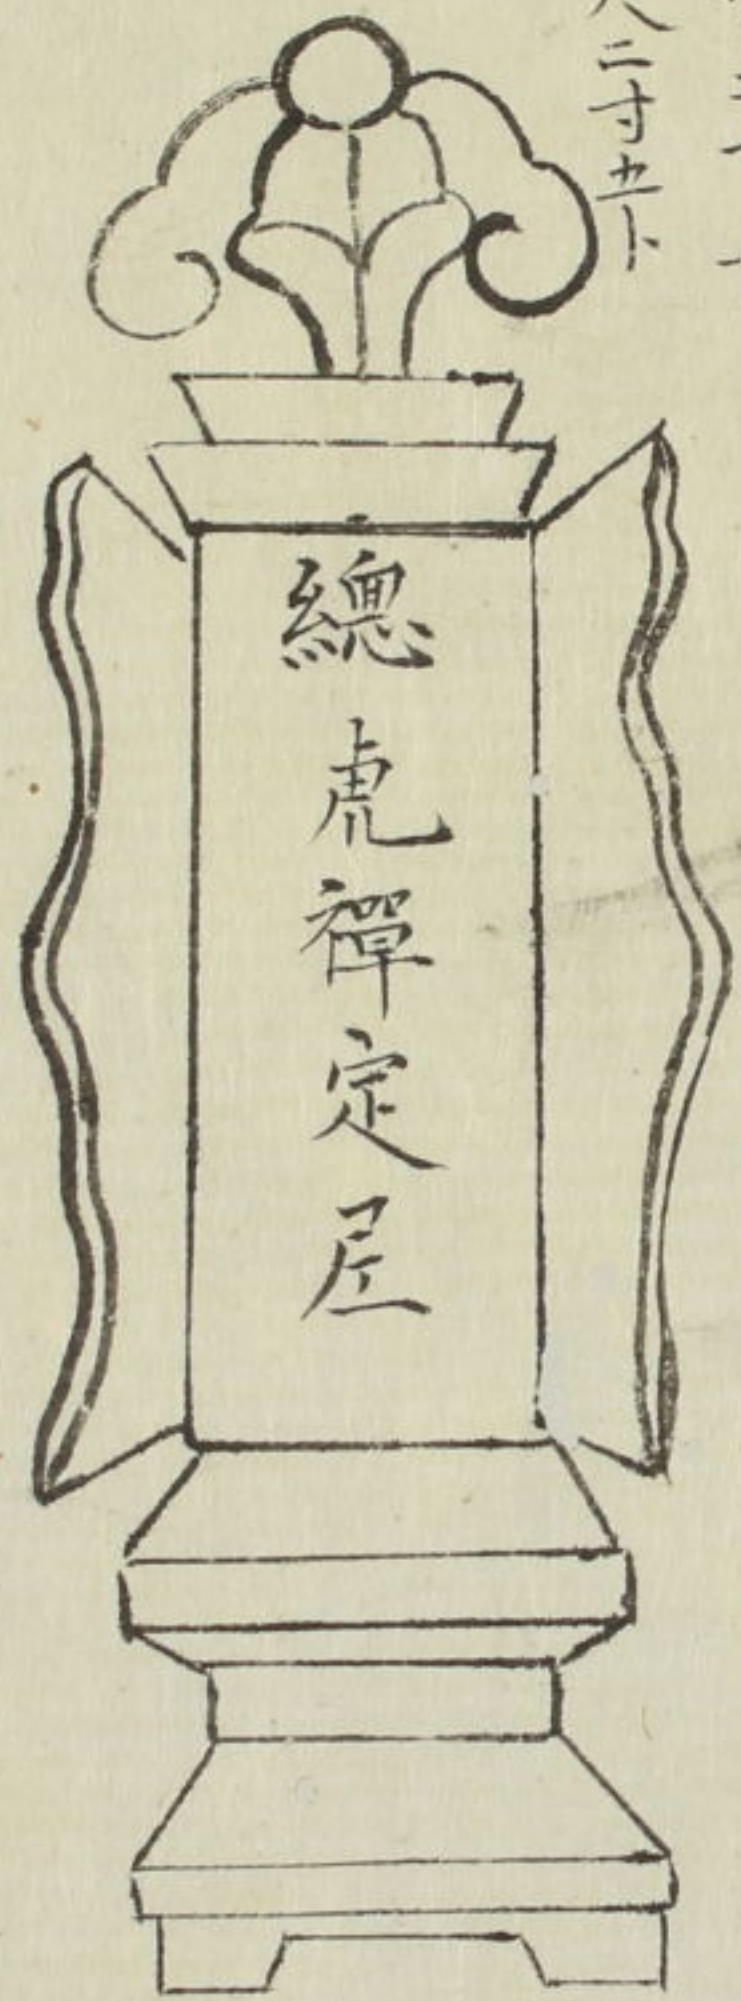 尺二寸五卜
總虎禪定㞐